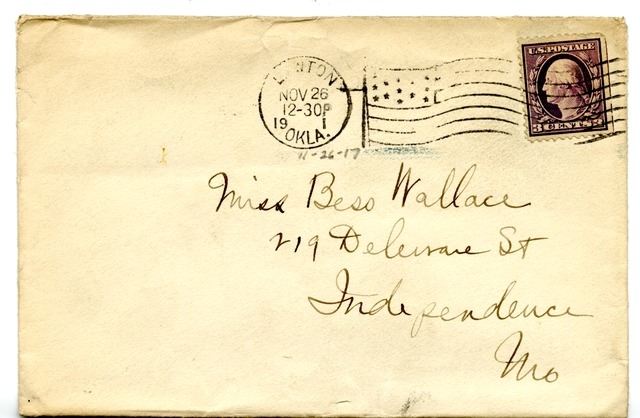 NOV 26
12-30P
19 1
OKLA.
U.S. POSTAGE
3 CENTS 3
11-26-17
Miss Bess Wallace
219 Deleware St
Independence
Mo